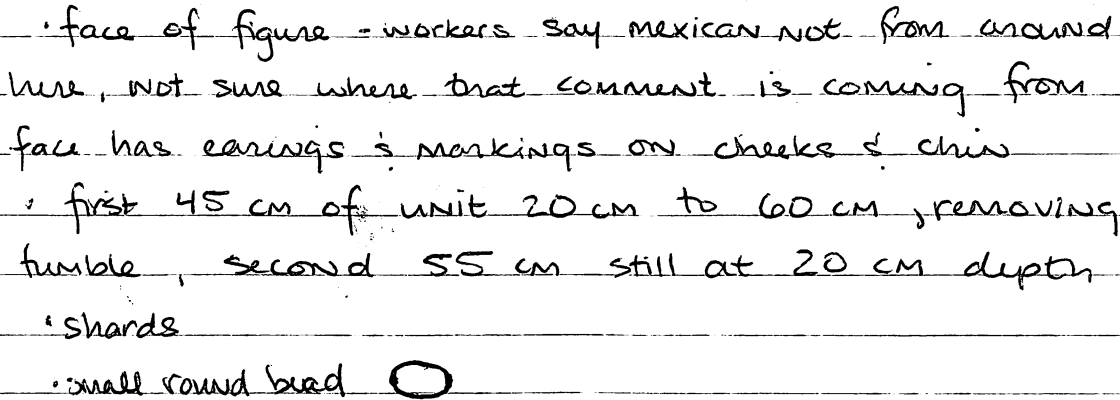 · face of figure - workers say mexican not from around
here, not sure where that comment is coming from
face has earings & markings on cheeks & chin
· first 45 cm of unit 20 cm to 60 cm, removing
tumble, second 55 cm still at 20 cm depth
· shards
· small round bead